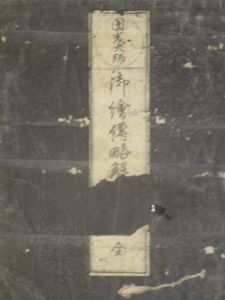 圓光大師御繪傳略觧 全